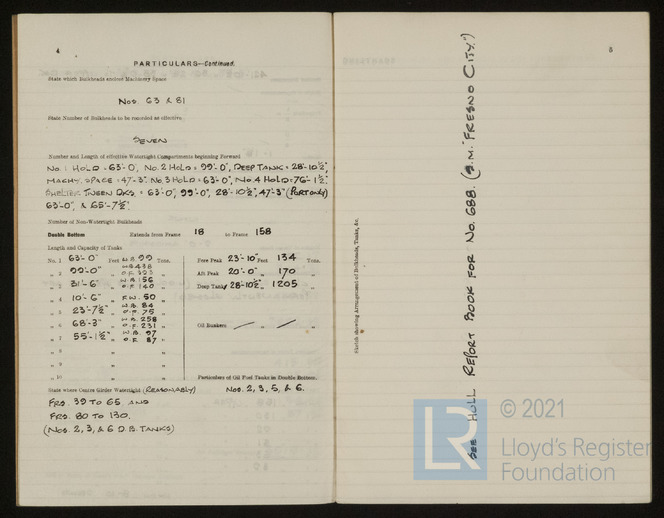 4
PARTICULARS—Continued.
State which Bulkheads enclose Machinery Space
Nos. 63 & 81
State Number of Bulkheads to be recorded as effective
SEVEN
Number and Length of effective Watertight Compartments beginning Forward
No. 1 HOLD = 63'-0", No. 2 HOLD = 99'-0", DEEP TANK = 28'-10½",
MACHY. SPACE = 47'-3". No. 3 HOLD = 63'-0", No. 4 HOLD = 76'-1½".
SHELTER TWEEN DKS. = 63'-0", 99'-0", 28'-10½", 47'-3" (PART ONLY)
63'-0", & 65'-7½".
Number of Non-Watertight Bulkheads
Double Bottom Extends from Frame 18 to Frame 158
Length and Capacity of Tanks
No. 1 63'-0" Feet W.B 99 Tons.
" 2 99'-0" " W.B 438 O.F. 393 "
" 3 31'-6" " W.B 156 O.F 140 "
" 4 10'-6" " F.W. 50 "
" 5 23'-7½" " W.B. 84 O.F. 75 "
" 6 68'-3" " W.B. 258 O.F. 231 "
" 7 55'-1½" " W.B. 97 O.F. 87 "
" 8 " "
" 9 " "
" 10
Fore Peak 23'-10" Feet 134 Tons.
Aft Peak 20'-0" " 170 "
Deep Tank 28'-10½" " 1205 "
Oil Bunkers " "
Particulars of Oil Fuel Tanks in Double Bottom.
Nos. 2, 3, 5, & 6.
State where Centre Girder Watertight (REASONABLY)
FRS. 39 TO 65 AND
FRS. 80 TO 130.
(Nos. 2, 3, & 6 D.B. TANKS)
5
Sketch showing Arrangement of Bulkheads, Tanks, &c.
SEE HULL REPORT BOOK FOR No. 688. (S.M. "FRESNO CITY.")
LR
© 2021
Lloyd's Register
Foundation